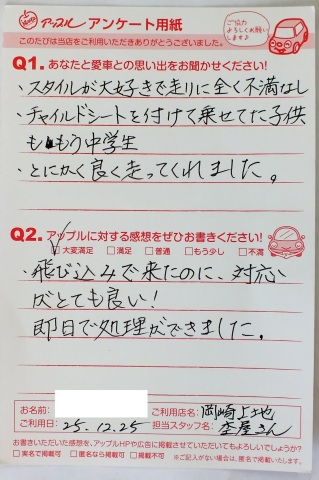 アップル アンケート用紙
このたびは当店をご利用いただきありがとうございました。
ご協力
よろしくお願い
します♪
Q1. あなたと愛車との思い出をお聞かせください!
・スタイルが大好きで走りに全く不満なし
・チャイルドシートを付けて乗せてた子供
も、もう中学生
・とにかく良く走ってくれました。
Q2. アップルに対する感想をぜひお書きください!
□大変満足 □満足 □普通 □もう少し □不満
・飛び込みで来たのに、対応
がとても良い!
即日で処理ができました。
お名前: ご利用店名: 岡崎上地
ご利用日: 25.12.25 担当スタッフ名: 杢屋さん
お書きいただいた感想を、アップルHPや広告に掲載させていただいてもよろしいでしょうか?
□実名で掲載可 □匿名なら掲載可 □掲載不可 ※ご記入がない場合は、匿名で掲載いたします。